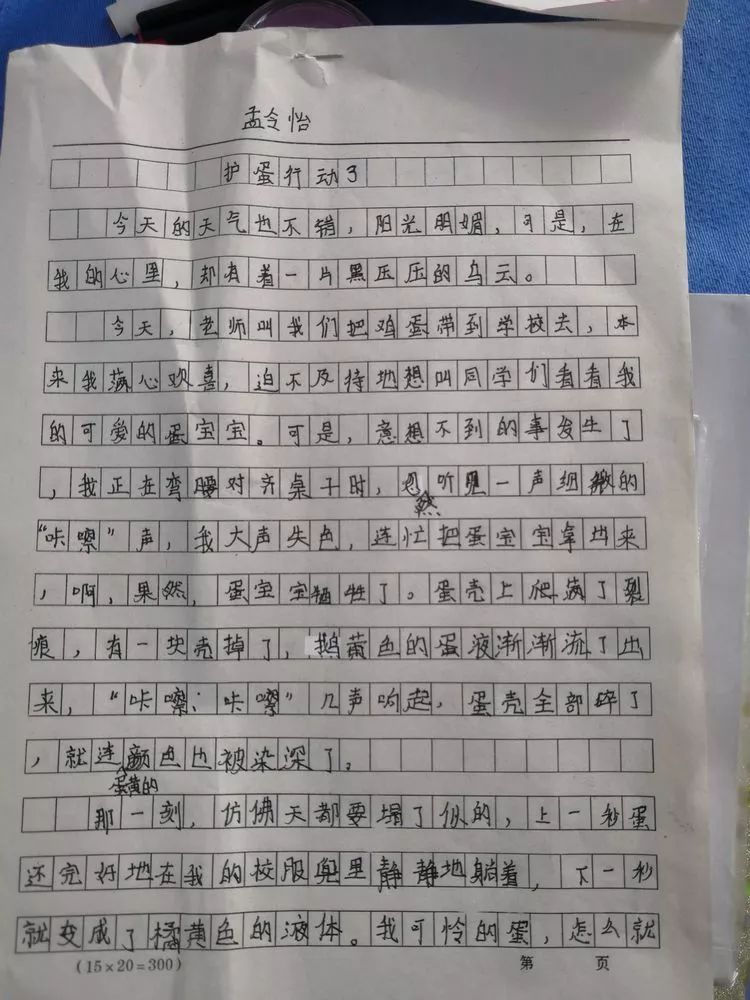 孟令怡
护蛋行动3
今天的天气也不错，阳光明媚，可是，在
我的心里，却有着一片黑压压的乌云。
今天，老师叫我们把鸡蛋带到学校去，本
来我满心欢喜，迫不及待地想叫同学们看看我
的可爱的蛋宝宝。可是，意想不到的事发生了
，我正在弯腰对齐桌子时，忽听见一声细微的
然
“咔嚓”声，我大声失色，连忙把蛋宝宝拿出来
，啊，果然，蛋宝宝牺牲了。蛋壳上爬满了裂
痕，有一块壳掉了，鹅黄色的蛋液渐渐流了出
来，“咔嚓；咔嚓”几声响起，蛋壳全部碎了
，就连颜色也被染深了。
蛋黄的
那一刻，仿佛天都要塌了似的，上一秒蛋
还完好地在我的校服兜里静静地躺着，下一秒
就变成了橘黄色的液体。我可怜的蛋，怎么就
(15×20=300)
第 页